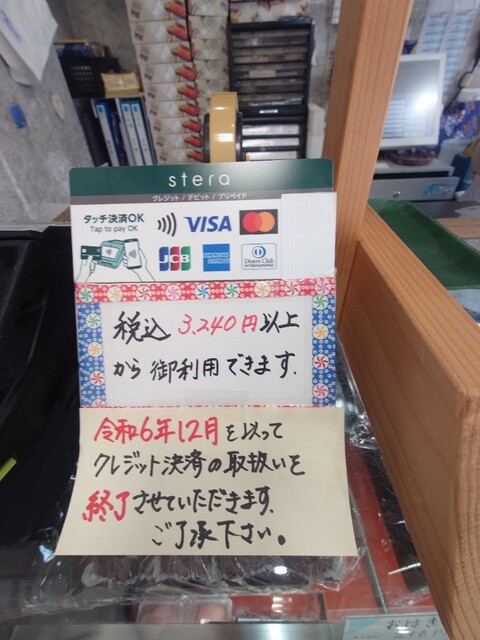 stera
クレジット / デビット / プリペイド
タッチ決済OK
Tap to pay OK
VISA
JCB
AMERICAN EXPRESS
Diners Club
INTERNATIONAL
税込 3,240円以上
から御利用できます.
令和6年12月を以って
クレジット決済の取扱いを
終了させていただきます.
ご了承下さい。
おはぎ